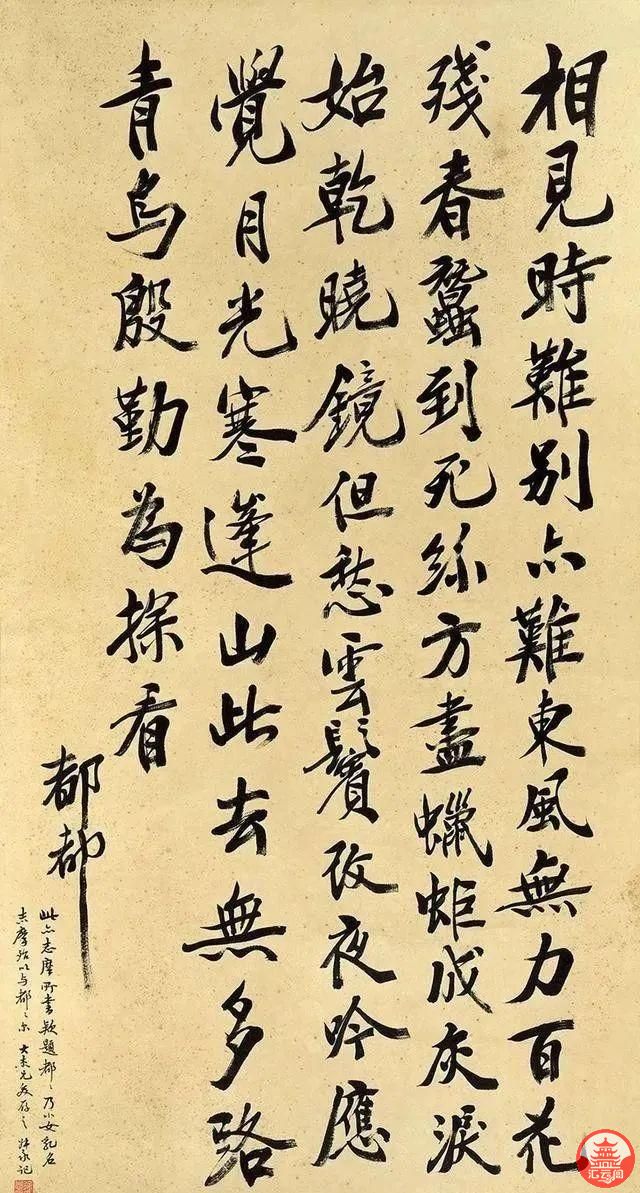 相見時難別亦難東風無力百花
殘春蠶到死絲方盡蠟炬成灰淚
始乾曉鏡但愁雲鬢改夜吟應
覺月光寒蓬山此去無多路
青鳥殷勤為探看
都都
此亦志摩所書款題都都乃小女乳名
志摩
汇云阁